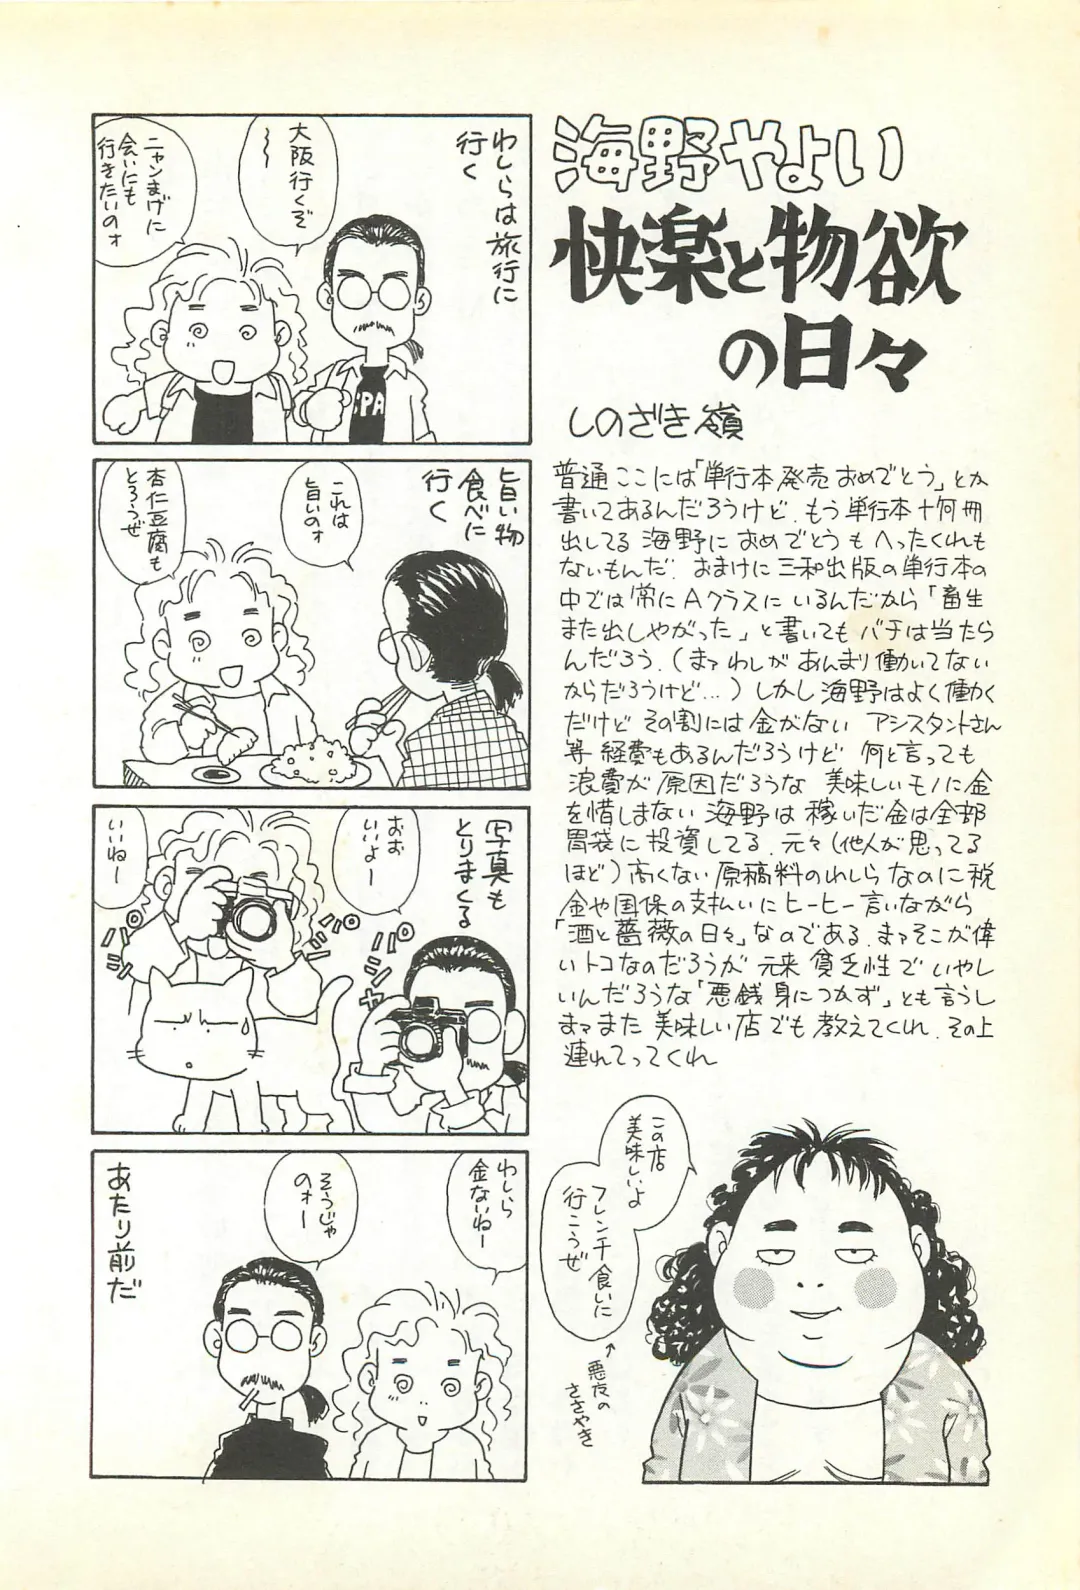 海野やよい
快楽と物欲
の日々
しのざき嶺
普通ここには「単行本発売おめでとう」とか
書いてあるんだろうけど、もう単行本十何冊
出してる海野におめでとうもへったくれも
ないもんだ。おまけに三和出版の単行本の
中では常にAクラスにいるんだから「畜生
また出しやがった」と書いてもバチは当たら
んだろう。(まァわしがあんまり働いてない
からだろうけど…)しかし海野はよく働く
だけどその割には金がない アシスタントさん
等経費もあるんだろうけど 何と言っても
浪費が原因だろうな 美味しいモノに金
を惜しまない海野は稼いだ金は全部
胃袋に投資してる。元々(他人が思ってる
ほど)高くない原稿料のわしらなのに税
金や国保の支払いにヒーヒー言いながら
「酒と薔薇の日々」なのである。まァそこが偉
いトコなのだろうが元来貧乏性でいやし
いんだろうな「悪銭身につかず」とも言うし
まァまた美味しい店でも教えてくれ。その上
連れてってくれ
この店
美味しいよ
フレンチ食いに
行こうぜ
↑
悪友の
ささやき
わしらは旅行に
行く
大阪行くぞ
〜
ニャンまげに
会いにも
行きたいのォ
SPA
旨い物
食べに
行く
これは
旨いのォ
杏仁豆腐も
とろうぜ
写真も
とりまくる
おお
いいよー
いいねー
パシャ
パシャ
わしら
金ないねー
そうじゃ
のォー
あたり前だ